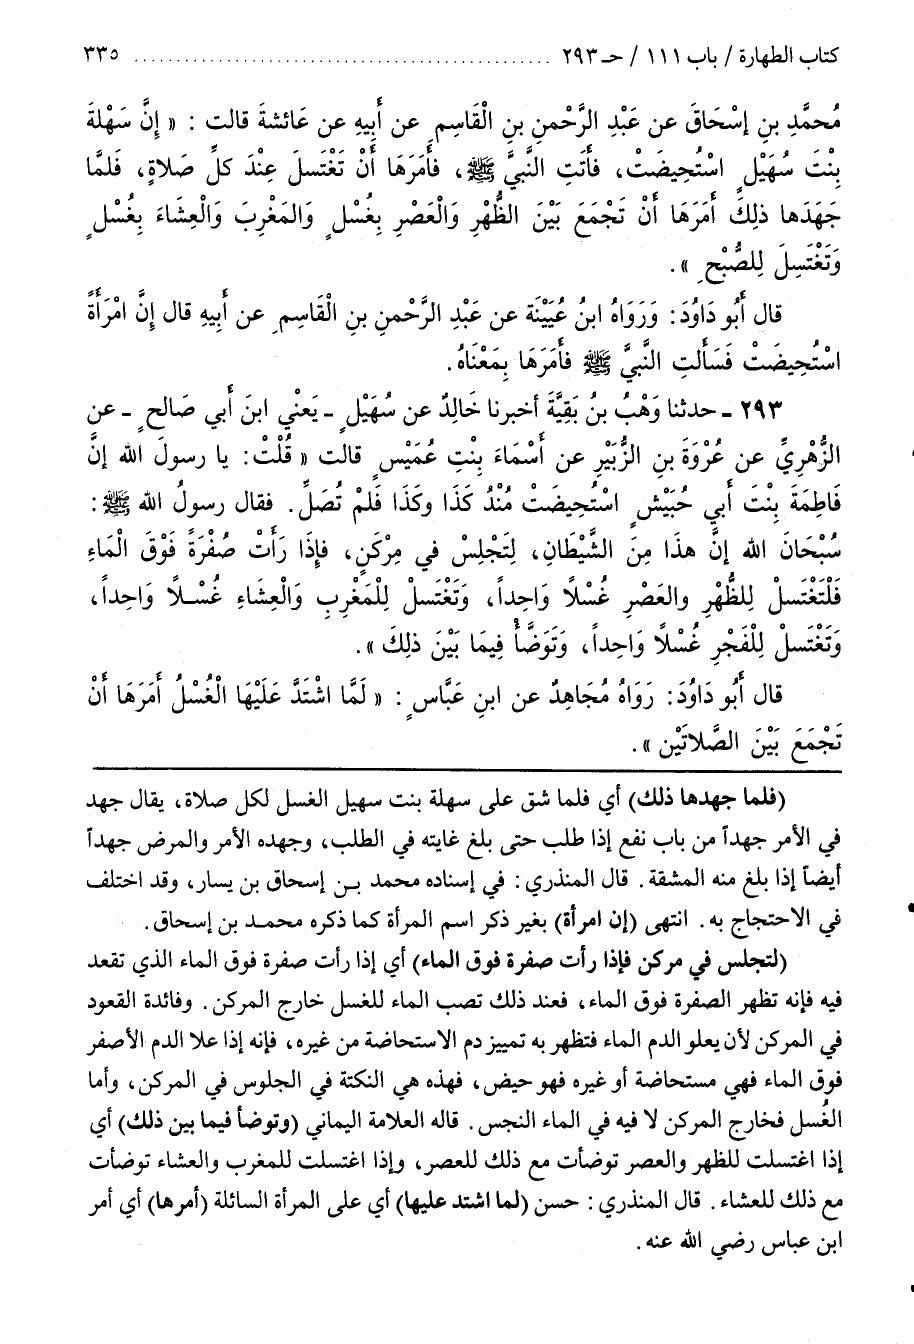 كتاب الطهارة / باب ١١١ / حـ ٢٩٣ .................................................. ٣٣٥
مُحمَّدِ بنِ إسْحَاقَ عن عَبْدِ الرَّحْمنِ بنِ الْقَاسِمِ عن أَبِيهِ عن عَائشةَ قالت : « إنَّ سَهْلةَ
بِنْتَ سُهَيْلٍ اسْتُحيضَتْ، فأَتَتِ النَّبيَّ ﷺ، فأَمَرَهَا أَنْ تَغْتَسلَ عِنْدَ كلِّ صَلاةٍ، فَلمَّا
جَهَدَها ذلِكَ أَمَرَهَا أَنْ تَجْمَعَ بَيْنَ الظُّهْرِ وَالْعَصْرِ بِغُسْلٍ وَالمَغْرِبَ وَالْعِشَاءَ بِغُسْلٍ
وَتَغْتَسِلَ لِلصُّبْحِ ».
قال أَبُو دَاوُدَ: وَرَوَاهُ ابنُ عُيَيْنَة عن عَبْدِ الرَّحْمنِ بنِ الْقَاسِمِ عن أَبيهِ قال إنَّ امْرَأَةً
اسْتُحِيضَتْ فَسَأَلتِ النَّبيَّ ﷺ فأمَرَهَا بِمَعْنَاهُ.
٢٩٣ ـ حدثنا وَهْبُ بنُ بَقِيَّةَ أخبرنا خَالِدٌ عن سُهَيْلٍ ـ يَعْنْي ابنَ أَبي صَالحٍ ـ عن
الزُّهْرِيِّ عن عُرْوَةَ بنِ الزُّبَيْرِ عن أَسْمَاءَ بِنْتِ عُمَيْسٍ قالت « قُلْتُ: يا رسولَ الله إنَّ
فَاطِمَةَ بِنْتَ أَبي حُبَيْشٍ اسْتُحِيضَتْ مُنْذُ كَذَا وكَذَا فَلمْ تُصَلِّ. فقال رسولُ الله ﷺ:
سُبْحَانَ الله إنَّ هذَا مِنَ الشَّيْطَانِ، لِتَجْلِسْ في مِرْكَنٍ، فإذَا رَأَتْ صُفْرَةً فَوْقَ الْمَاءِ
فَلْتَغْتَسلْ لِلظُّهْرِ والعَصْرِ غُسْلًا وَاحِداً، وَتَغْتَسلْ لِلْمَغْرِبِ وَالْعِشَاءِ غُسْـلًا وَاحِداً،
وَتَغْتَسلْ لِلْفَجْرِ غُسْلًا وَاحِداً، وَتَوَضَّأُ فِيمَا بَيْنَ ذلِكَ ».
قال أَبُو دَاوُدَ: رَوَاهُ مُجَاهِدٌ عن ابنِ عَبَّاسٍ: « لَمَّا اشْتَدَّ عَلَيْهَا الْغُسْلُ أَمَرَهَا أَنْ
تَجْمَعَ بَيْنَ الصَّلاتَيْنِ ».
(فلما جهدها ذلك) أي فلما شق على سهلة بنت سهيل الغسل لكل صلاة، يقال جهد
في الأمر جهداً من باب نفع إذا طلب حتى بلغ غايته في الطلب، وجهده الأمر والمرض جهداً
أيضاً إذا بلغ منه المشقة. قال المنذري: في إسناده محمد بـن إسحاق بن يسار، وقد اختلف
في الاحتجاج به. انتهى (إن امرأة) بغير ذكر اسم المرأة كما ذكره محمـد بن إسحاق.
(لتجلس في مركن فإذا رأت صفرة فوق الماء) أي إذا رأت صفرة فوق الماء الذي تقعد
فيه فإنه تظهر الصفرة فوق الماء، فعند ذلك تصب الماء للغسل خارج المركن. وفائدة القعود
في المركن لأن يعلو الدم الماء فتظهر به تمييز دم الاستحاضة من غيره، فإنه إذا علا الدم الأصفر
فوق الماء فهي مستحاضة أو غيره فهو حيض، فهذه هي النكتة في الجلوس في المركن، وأما
الغُسل فخارج المركن لا فيه في الماء النجس. قاله العلامة اليماني (وتوضأ فيما بين ذلك) أي
إذا اغتسلت للظهر والعصر توضأت مع ذلك للعصر، وإذا اغتسلت للمغرب والعشاء توضأت
مع ذلك للعشاء. قال المنذري: حسن (لما اشتد عليها) أي على المرأة السائلة (أمرها) أي أمر
ابن عباس رضي الله عنه.